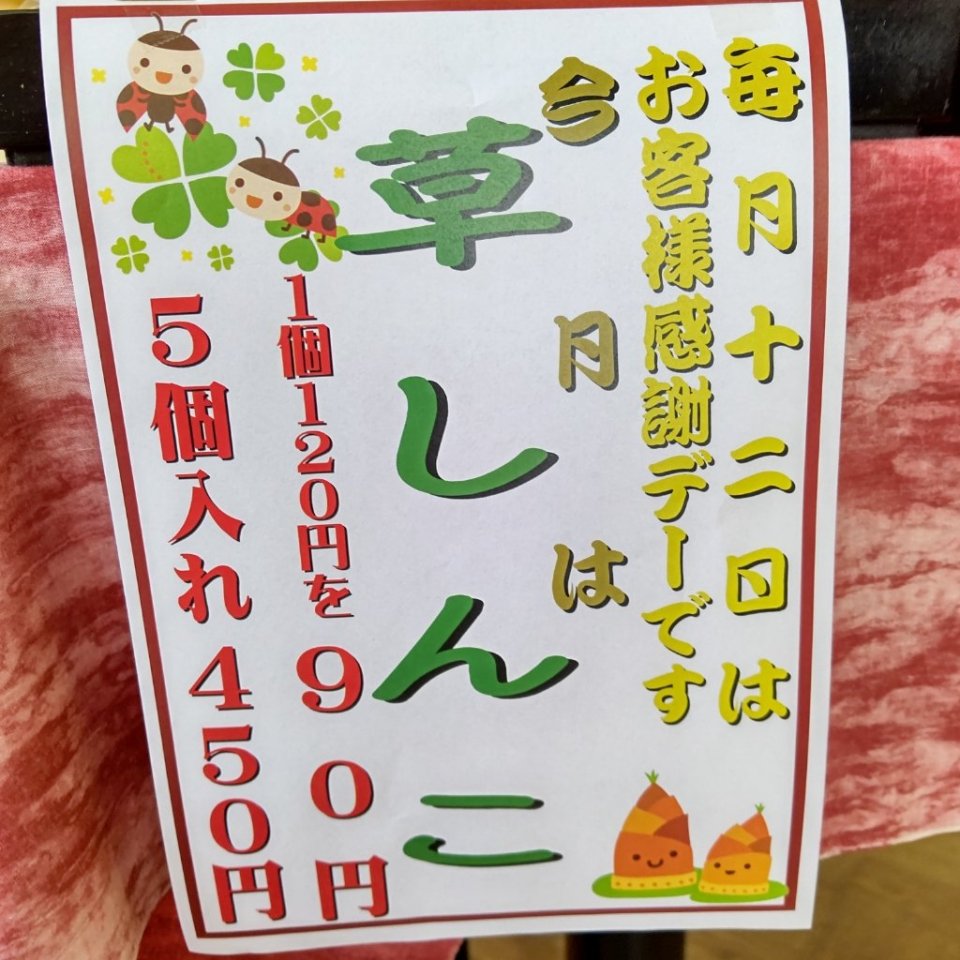 毎月十二日は
お客様感謝デーです
今月は
草しんこ
1個120円を90円
5個入れ450円